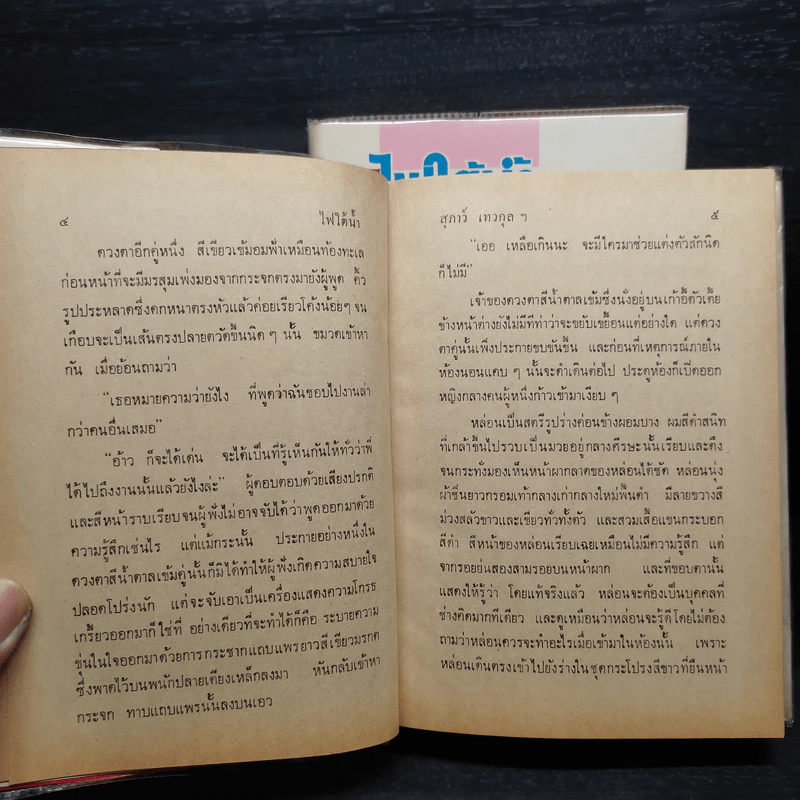 ไฟใต้น้ำ
๔
ไฟใต้น้ำ
ดวงตาอีกคู่หนึ่ง สีเขียวเข้มอมฟ้าเหมือนท้องทะเล
ก่อนหน้าที่จะมีมรสุมเพ่งมองจากกระจกตรงมายังผู้พูด คิ้ว
รูปประหลาดซึ่งดกหนาตรงหัวแล้วค่อยเรียวโค้งน้อยๆ จน
เกือบจะเป็นเส้นตรงปลายตวัดขึ้นนิด ๆ นั้น ขมวดเข้าหา
กัน เมื่อย้อนถามว่า
“เธอหมายความว่ายังไง ที่พูดว่าฉันชอบไปงานล่า
กว่าคนอื่นเสมอ”
“อ้าว ก็จะได้เด่น จะได้เป็นที่รู้เห็นกันให้ทั่วว่าพี่
ได้ไปถึงงานนั้นแล้วยังไงล่ะ” ผู้ตอบตอบด้วยเสียงปรกติ
และสีหน้าราบเรียบจนผู้ฟังไม่อาจจับได้ว่าพูดออกมาด้วย
ความรู้สึกเช่นไร แต่แม้กระนั้น ประกายอย่างหนึ่งใน
ดวงตาสีน้ำตาลเข้มคู่นั้นก็มิได้ทำให้ผู้ฟังเกิดความสบายใจ
ปลอดโปร่งนัก แต่จะจับเอาเป็นเครื่องแสดงความโกรธ
เกรี้ยวออกมาก็ใช่ที่ อย่างเดียวที่จะทำได้ก็คือ ระบายความ
ขุ่นในใจออกมาด้วยการกระชากแถบแพรยาวสีเขียวมรกต
ซึ่งพาดไว้บนพนักปลายเตียงเหล็กลงมา หันกลับเข้าหา
กระจก ทาบแถบแพรนั้นลงบนเอว
สุภาว์ เทวกุล ฯ
๕
“เออ เหลือเกินนะ จะมีใครมาช่วยแต่งตัวสักนิด
ก็ไม่มี”
เจ้าของดวงตาสีน้ำตาลเข้มซึ่งนั่งอยู่บนเก้าอี้ตัวเตี้ย
ข้างหน้าต่างยังไม่มีทีท่าว่าจะขยับเขยื้อนแต่อย่างใด แต่ดวง
ตาคู่นั้นเพิ่งประกายขบขันขึ้น และก่อนที่เหตุการณ์ภายใน
ห้องนอนแคบ ๆ นั้นจะดำเนินต่อไป ประตูห้องก็เปิดออก
หญิงกลางคนผู้หนึ่งก้าวเข้ามาเงียบ ๆ
หล่อนเป็นสตรีรูปร่างค่อนข้างผอมบาง ผมสีดำสนิท
ที่เกล้าขึ้นไปรวบเป็นมวยอยู่กลางศีรษะนั้นเรียบและตึง
จนกระทั่งมองเห็นหน้าผากลาดของหล่อนได้ชัด หล่อนนุ่ง
ผ้าซิ่นยาวกรอมเท้ากลางเก่ากลางใหม่พื้นดำ มีลายขวางสี
ม่วงสลัวขาวและเขียวทั่วทั้งตัว และสวมเสื้อแขนกระบอก
สีดำ สีหน้าของหล่อนเรียบเฉยเหมือนไม่มีความรู้สึก แต่
จากรอยย่นสองสามรอยบนหน้าผาก และที่ขอบตานั้น
แสดงให้รู้ว่า โดยแท้จริงแล้ว หล่อนจะต้องเป็นบุคคลที่
ช่างคิดมากทีเดียว และดูเหมือนว่าหล่อนจะรู้ดีโดยไม่ต้อง
ถามว่าหล่อนควรจะทำอะไรเมื่อเข้ามาในห้องนั้น เพราะ
หล่อนเดินตรงเข้าไปยังร่างในชุดกระโปรงสีขาวที่ยืนหน้า